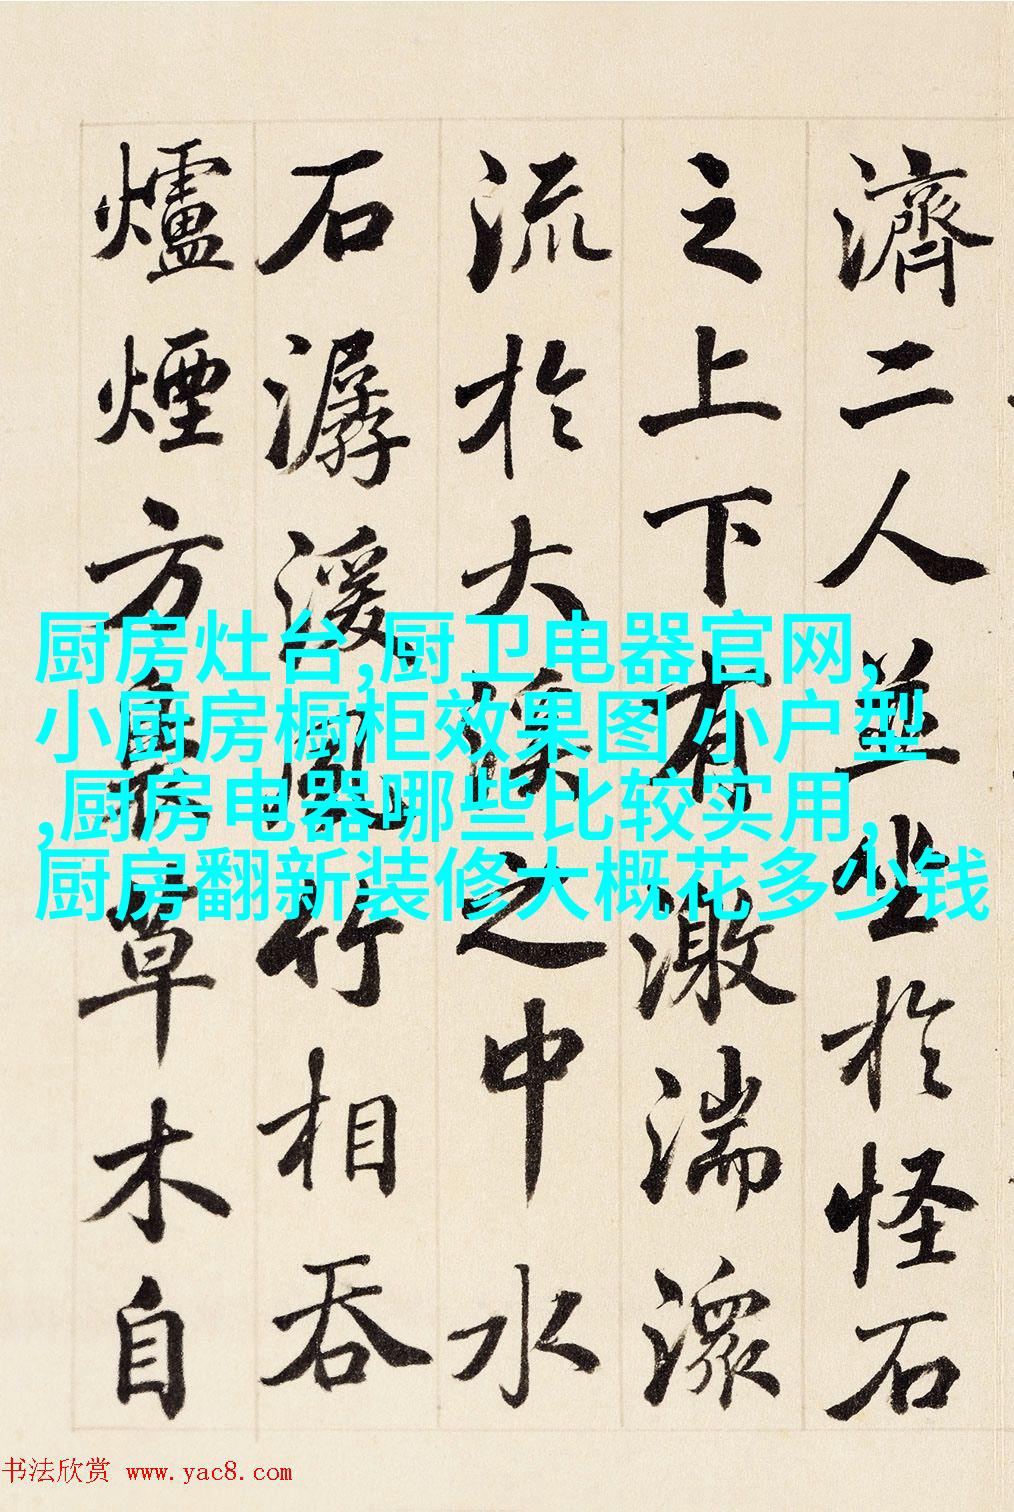 濟二人並坐於怪石
之上下有激湍潨
流於大溪之中水
石潺湲風竹相吞
爐煙方裊草木自
厨房灶台,厨卫电器官网,
小厨房橱柜效果图 小户型
,厨房电器哪些比较实用,
厨房翻新装修大概花多少钱
书法欣赏 www.yac8.com